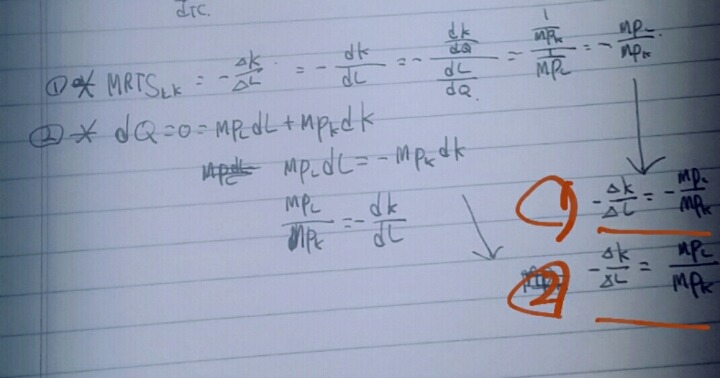 etc.
① * MRTS_LK = -ΔK/ΔL = -dK/dL = -(dK/dQ)/(dL/dQ) = (1/MP_K)/(1/MP_L) = -MP_L/MP_K.
② * dQ=0=MP_L dL+MP_K dK
MP_L dL=-MP_K dK
MP_L/MP_K=-dK/dL
1) -ΔK/ΔL = -MP_L/MP_K
2) -ΔK/ΔL = MP_L/MP_K